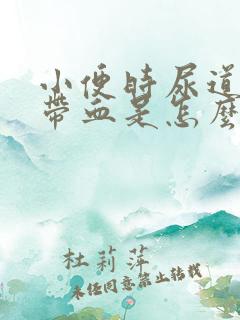 小便时尿道
带血是怎么
杜莉萍
未经同意禁止转载